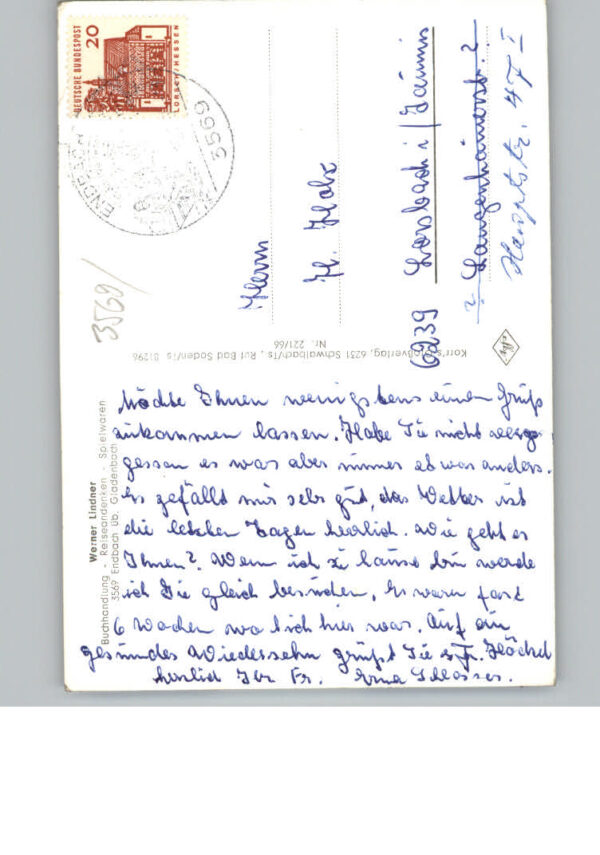 Möchte Ihnen wenigstens einen Gruß
zukommen lassen. Habe Sie nicht verge
gessen es war aber immer etwas anders.
Es gefällt mir sehr gut, das Wetter ist
die letzten Tagen herlich. Wie geht es
Ihnen? Wenn ich zu hause bin werde
ich Sie gleich besuchen. Es waren fast
6 Wochen wo ich hier war. Auf ein
gesundes Wiedersehn grüßt Sie Fr.
herlich Ihr Fr. Erna Schlosser.
Werner Lindner
Buchhandlung - Reiseandenken - Spielwaren
3569 Endbach üb. Gladenbach
Korr's Großverlag, 6231 Schwalbach/Ts., Ruf Bad Soden/Ts. 81296
Nr. 221/66
3569/
DEUTSCHE BUNDESPOST
20
LORSCH/HESSEN
3569
Herrn
H. Holz
6239 Lorsbach i/Taunus
Langenhainerstr. 2
Hauptstr. 47 I